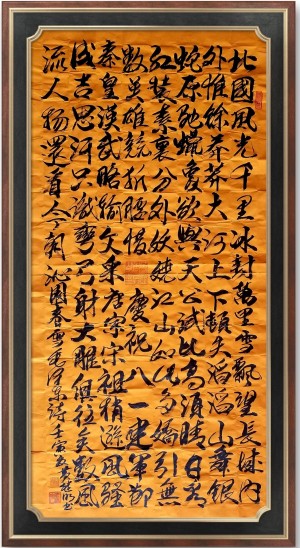 北國風光千里冰封萬里雪飄望長城内
外惟餘莽莽大河上下頓失滔滔山舞銀
蛇原馳蠟象欲與天公試比高須晴日看
紅裝素裹分外妖嬈江山如此多嬌引無
數英雄競折腰惜 慶祝八一建軍節
秦皇漢武略輸文采唐宗宋祖稍遜風騷
成吉思汗只識彎弓射大雕俱往矣數風
流人物還看今朝 沁園春雪毛澤東詩 壬寅